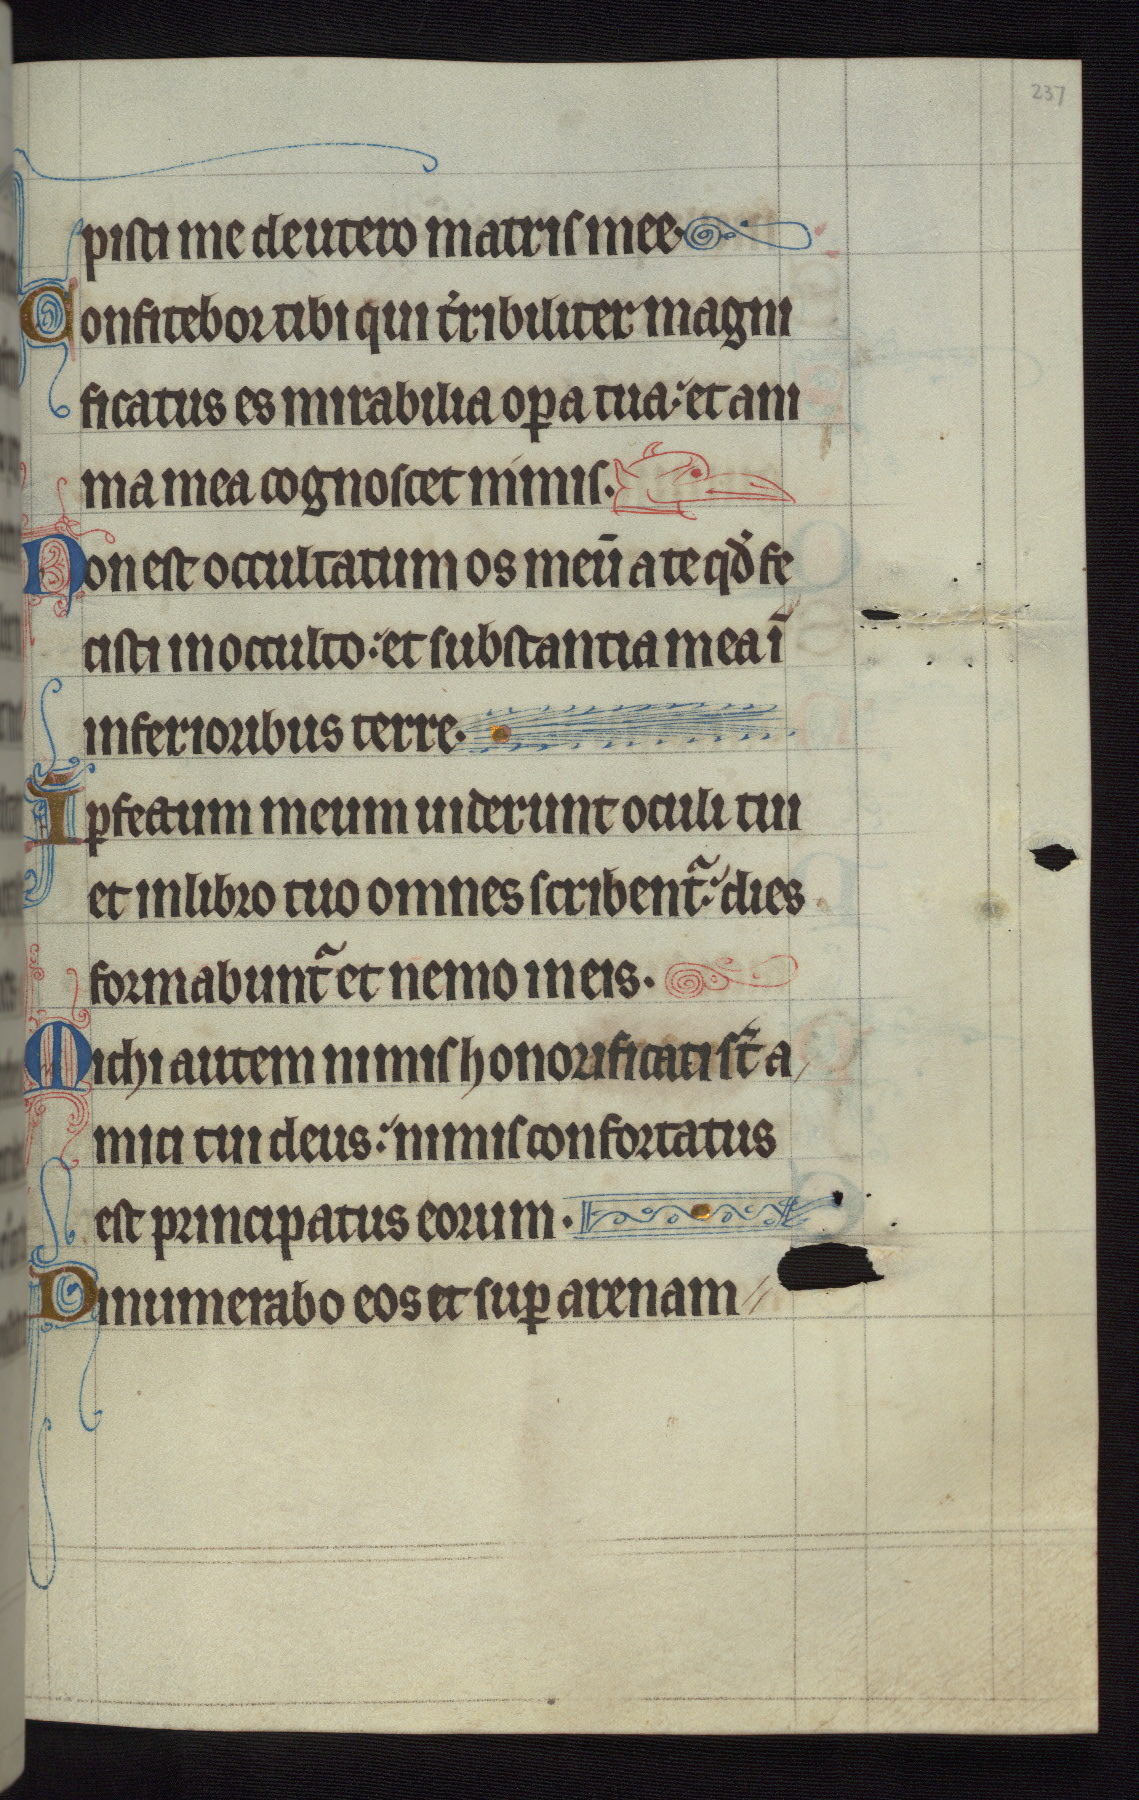 237
pisti me de utero matris mee.
Confitebor tibi qui t̾ribiliter magni
ficatus es mirabilia op̲a tua: et ani
ma mea cognoscet nimis.
Non est occultatum os meū a te qd̾ fe
cisti in occulto: et substantia mea ī
inferioribus terre.
Ip̲fectum meum uiderunt oculi tui
et in libro tuo omnes scribent᷑: dies
formabunt᷑ et nemo in eis.
Michi autem nimis honorificati st̄ a
mici tui deus: nimis confortatus
est principatus eorum.
Dinumerabo eos et sup̲ arenam